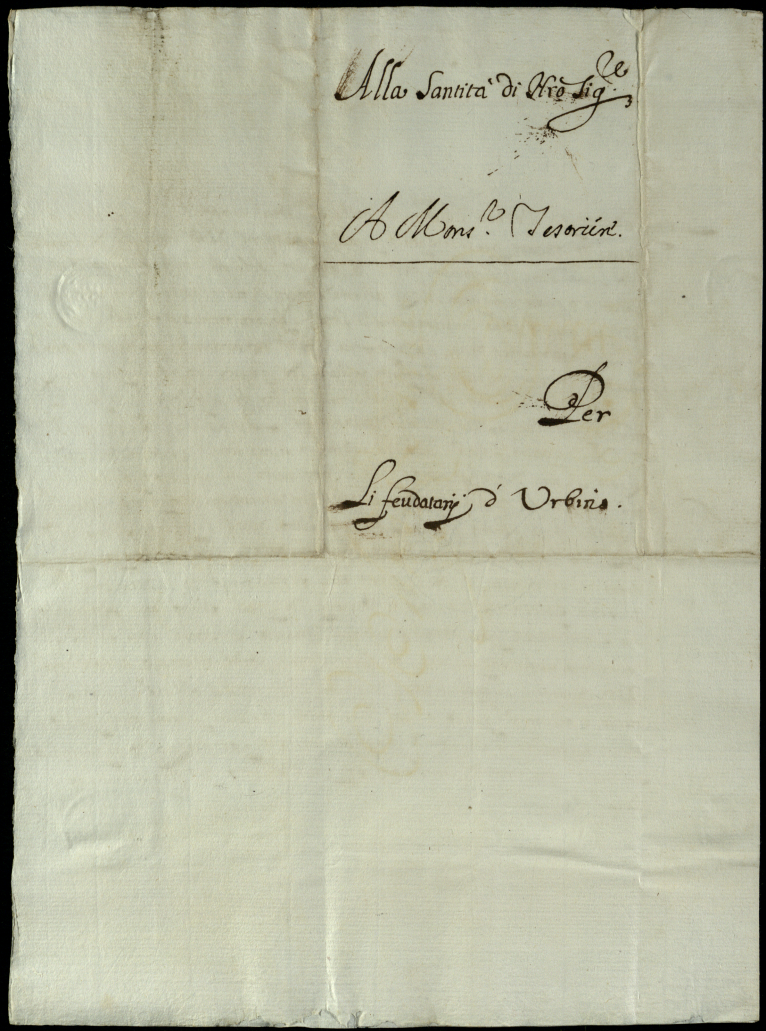 Alla Santità di Nrõ Sig.re
A Mons.r Tesoriere.
Per
Li feudatarij d' Urbino.